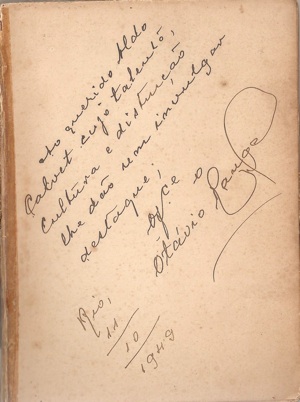 Ao querido Aldo
Calvet cujo talento,
cultura e distinção
lhe dão um invulgar
destaque,
of.ce o
Otávio Rangel
Rio,
11
10
1949